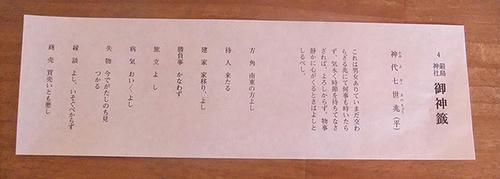 4 嚴島神社 御神籤
神代七世兆(平)
かみよななよのちょう
これは男女ありていまだ交わ
らざる兆にて何事も時いたら
ず、気永く時節を待ちてなさ
ざれば、よろしからず、物事
静かに心がくるときはよしと
しるべし。
方角 南東の方よし
待人 来たる
建家 家移り、よし
勝負事 かなわず
旅立 よし
病気 おいおい、よし
失物 今でがたしのち見
つかる
縁談 よし、いそぐべからず
商売 買売いとも悪し